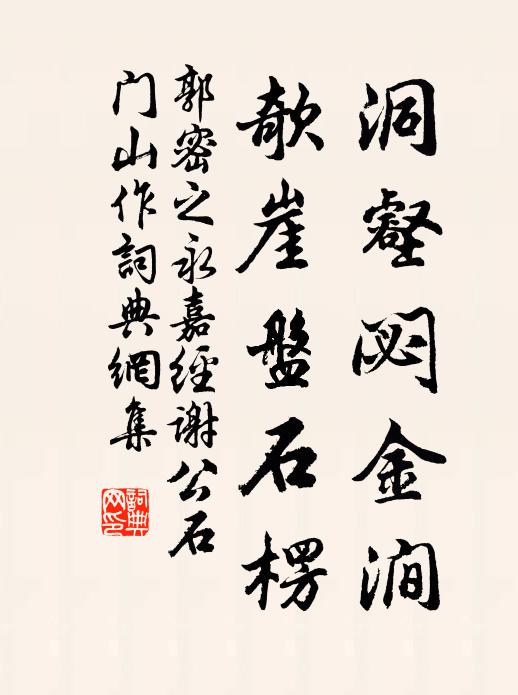 洞壑閟金澗
欹崖盤石楞
郭密之永嘉經謝公石
门山作詞典網集
詞典網印